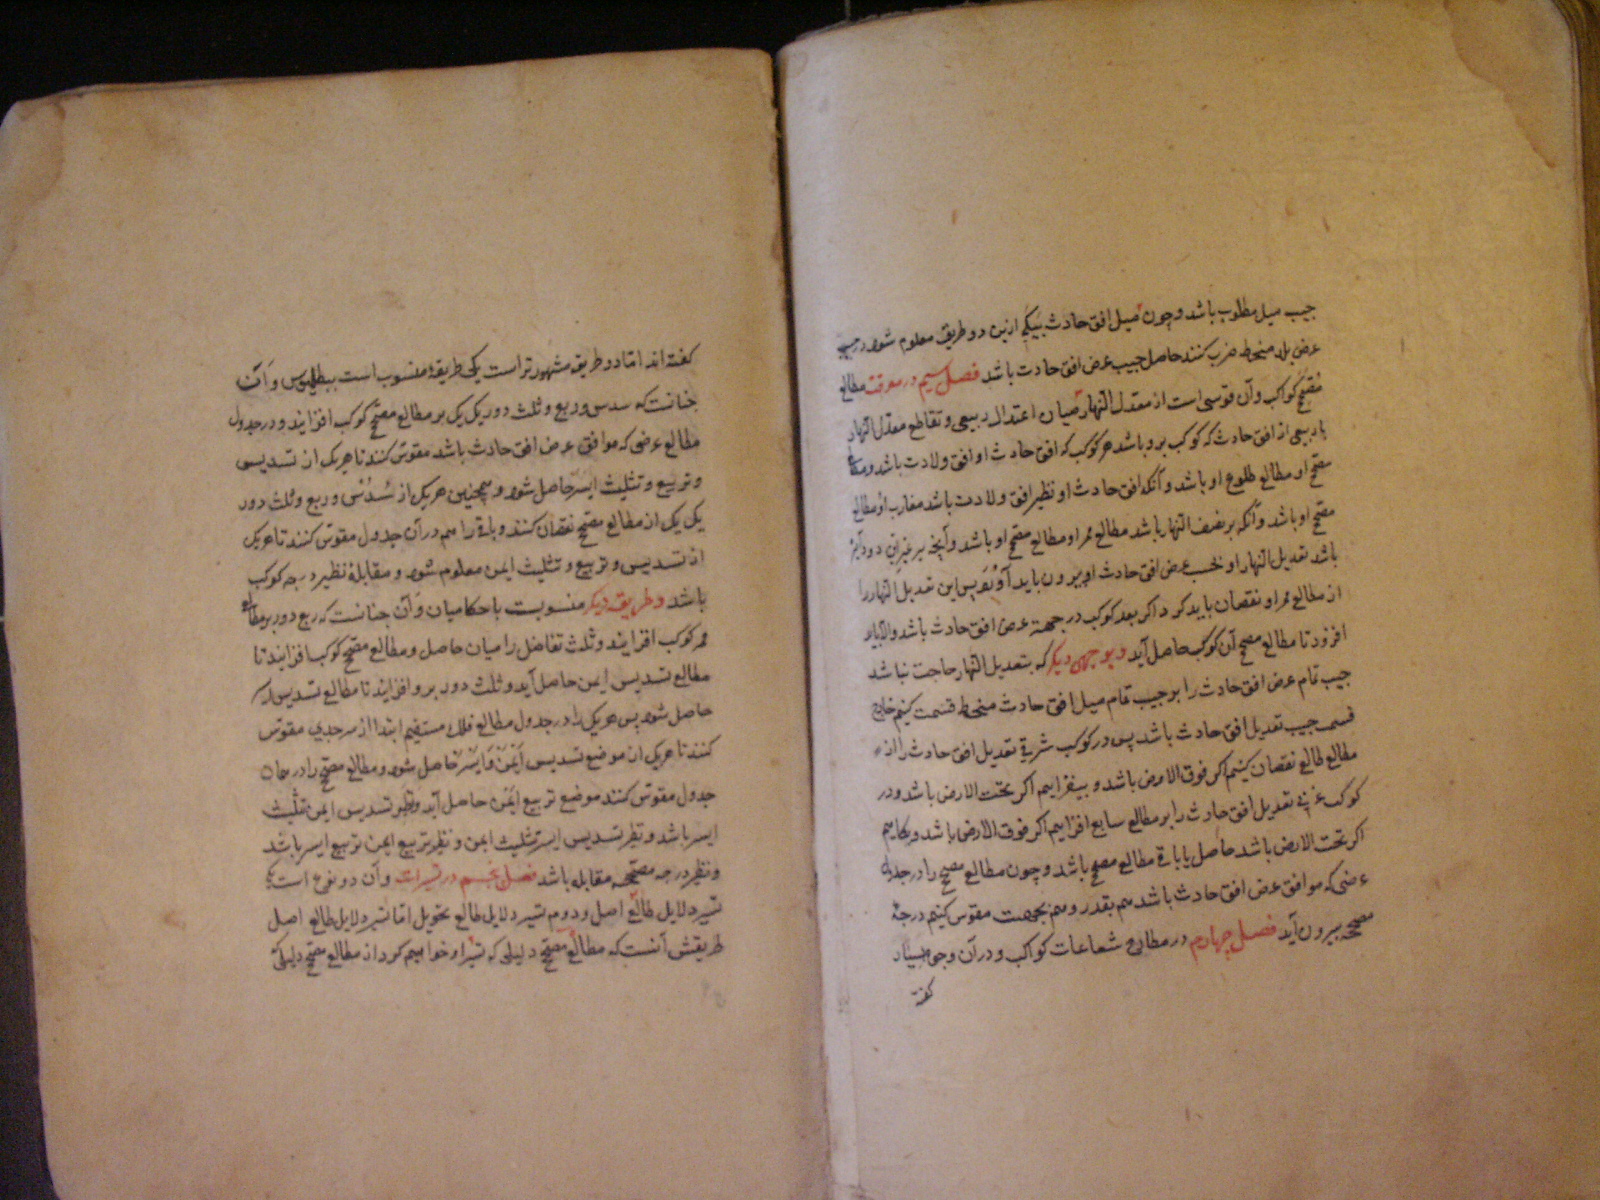 جیب میل مطلوب باشد و چون میل افق حادث بیکی ازین دو طریق معلوم شود در جیب
عرض بلد منحط ضرب کنند حاصل جیب عرض افق حادث باشد فصل سیم در معرفت مطالع
مصحح کواکب و آن قوسی است از معدل النهار میان اعتدال ربیعی و تقاطع معدل النهار
با ربعی از افق حادث که کوکب برو باشد هر کوکب که افق حادث او افق ولادت باشد و مطالع
مصحح او مطالع طلوع او باشد و آنکه افق حادث او نظیر افق ولادت باشد مغارب او مطالع
مصحح او باشد و آنکه بر نصف النهار باشد مطالع ممر او مطالع مصحح او باشد و آنچه بر غیر این دو دایره
باشد تعدیل النهار او بحسب عرض افق حادث او بیرون باید آورد پس این تعدیل النهار را
از مطالع ممر او نقصان باید کرد اگر بعد کوکب در جهة عرض افق حادث باشد والا باید
افزود تا مطالع مصحح آن کوکب حاصل آید و بوجهی دیگر که بتعدیل النهار حاجت نباشد
جیب تمام عرض افق حادث را بر جیب تمام میل افق حادث منحط قسمت کنیم خارج
قسمت جیب تعدیل افق حادث باشد پس در کوکب شرقی تعدیل افق حادث را از
مطالع طالع نقصان کنیم اگر فوق الارض باشد و بیفزاییم اگر تحت الارض باشد و در
کوکب غربی تعدیل افق حادث را بر مطالع سابع افزاییم اگر فوق الارض باشد و بکاهیم
اگر تحت الارض باشد حاصل یا باقی مطالع مصحح باشد و چون مطالع مصحح را در جدول
عرضی که موافق عرض افق حادث باشد هم بقدر و هم بجهت مقوس کنیم درجهٔ
مصححه بیرون آید فصل چهارم در مطارح شعاعات کواکب و در آن وجوه بسیار
گفته
گفته اند اما دو طریقه مشهورتر است یکی طریقهٔ منسوب است ببطلمیوس و آن
چنانست که سدس و ربع و ثلث دور یک یک بر مطالع مصحح کوکب افزایند و در جدول
مطالع عرضی که موافق عرض افق حادث باشد مقوس کنند تا هر یک از تسدیس
و تربیع و تثلیث ایسر حاصل شود و همچنین هر یک از سدس و ربع و ثلث دور
یک یک از مطالع مصحح نقصان کنند و باقی را هم در آن جدول مقوس کنند تا هر یک
از تسدیس و تربیع و تثلیث ایمن معلوم شود و مقابله نظیر درجه کوکب
باشد و طریقه دیگر منسوبست باحکامیان و آن چنانست که ربع دور بر مطالع
ممر کوکب افزایند و ثلث تفاضل را میان حاصل و مطالع مصحح کوکب افزایند تا
مطالع تسدیس ایمن حاصل آید و ثلث دور برو افزایند تا مطالع تسدیس ایسر
حاصل شود پس هر یک را در جدول مطالع فلک مستقیم ابتدا از سر جدی مقوس
کنند تا هر یک از موضع تسدیس ایمن و ایسر حاصل شود و مطالع مصحح را در همان
جدول مقوس کنند موضع تربیع ایمن حاصل آید و نظیر تسدیس ایمن تثلیث
ایسر باشد و نظیر تسدیس ایسر تثلیث ایمن و نظیر تربیع ایمن تربیع ایسر باشد
و نظیر درجه مصححه مقابله باشد فصل پنجم در تسییرات و آن دو نوع است یکی
تسییر دلایل طالع اصل و دوم تسییر دلایل طالع تحویل اما تسییر دلایل طالع اصل
طریقش آنست که مطالع مصحح دلیلی که تسییر او خواهیم کرد از مطالع مصحح دلیلی